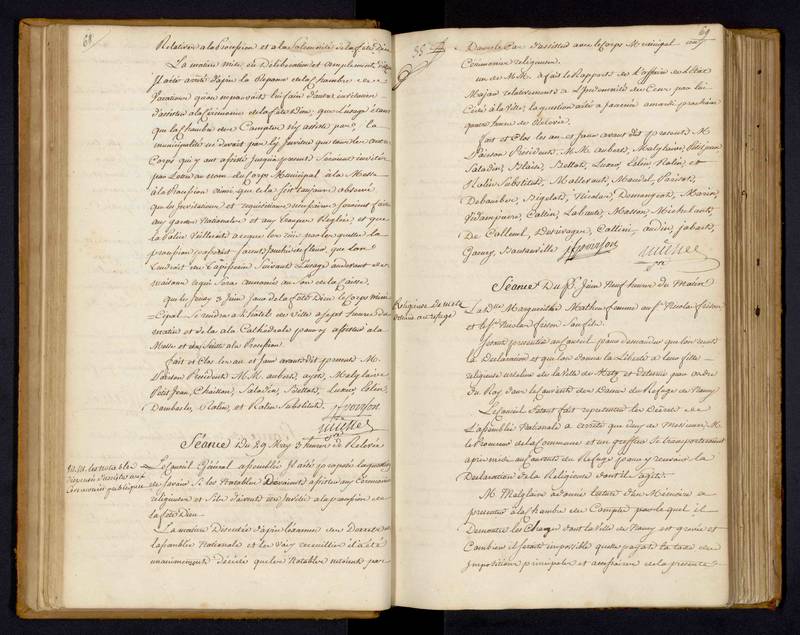 68
Relatives a la Procession et a la Solemnité de la fête Dieu
La matiere mise en Deliberation et amplement
Il a été arrêté d'après la Réponse de la Chambre des
Vacations qu'on ne pouvoit lui faire d'autre invitation
d'assister a la Ceremonie de la fête Dieu, que l'usage étant
que la Chambre des Comptes n'y assiste pas, la
municipalité ne devoit pas l'y Inviter que tous les autres
Corps qui y ont assisté jusqu'a present Seroient invités
par Lettre au nom du Corps Municipal à la Messe
à la Procession ainsi que cela s'est toujours observé
que les Invitations et requisitions necessaires seroient faites
aux gardes Nationales et aux troupes Reglées, et que
la Police Veilleroit a ce que les rues par lesquelles la
procession passeroit soient jonchées de fleurs, que l'on
tendroit des Tapisseries Suivant l'usage au devant des
maisons, qui sera annoncé au Son de la Caisse.
que le Jeudy 3 Juin Jour de la fête Dieu le Corps Muni-
cipal Se rendra a l'hôtel de Ville a Sept heures du
matin et de la a la Cathédrale pour y assister a la
Messe et ensuite a la Procession.
fait et Clos les an et Jour avant dit presents M.
Poirson Président M.M. aubert, ayet, Malglaive
Petit Jean, Chaillon, Saladin, Bettot, Luxer, Lelin,
Dombasle, Nolin, et Rolin Substitut. ff poirson
Séance Du 29 May 3 heures de Relevée
M.M. les notables
dispensés d'assister aux
Ceremonies publiques
Le Conseil Général assemblée Il a été proposé la question
de savoir Si les Notables Devoient assister aux Ceremonies
religieuses et S'ils doivent être Invités a la procession de
la fête Dieu.
La matiere Discutée d'après l'examen des Decrets de
l'assemblée Nationale et les Voix recueillies il a été
unanimement décidé que les Notables n'etoient pas
69
55
Dans le Cas d'assister avec le Corps Municipal aux
Ceremonies religieuses.
un de M.M. a fait le Rapport de l'affaire de l'Etat
Major relativement a l'Indemnité de Cour par lui
Cédé à la Ville, la question a été ajournée a mardi prochain
quatre heures de Relevée.
fait et Clos les an et Jour avant dit presents M
Poirson Président, M.M. Aubert, Malglaive, Petitjean,
Saladin, Blaise, Bettot, Luxer, Lelin, Nolin, et
Rolin Substitut, Mallarmé, Mandel, Parisot,
Debaubers, Bigelot, Nicolas, Demangeot, Marin,
Villampierre, Collin, Labanté, Masson, Michel aîné,
De Colleul, Desrivages, Collini, andin, jobart,
Gaury, Hauteville ff poirson
Séance Du pr. Juin Neuf heures du Matin
Religieuse de Metz
detenue au refuge
La De. Marguerithe Mathieu femme au Sr. Nicolas frison
et le Sr. Nicolas frison Son fils.
Se sont presentés au Conseil pour demander que l'on reçut
la Declaration et que l'on donne la Liberté a leur fille
religieuse de la Ville de Metz et detenue par ordre
du Roy dans le Couvent des Dames du Refuge de Nancy
Le Conseil S'etant fait representer les Decrets de
l'assemblée Nationale a arrêté que deux de Messieurs, M.
le Procureur de la Commune et un greffier se transporteroient
après midi au Couvent du Refuge pour y recevoir la
Declaration de la Religieuse dont il S'agit.
M. Malglaive a donné lecture d'un Mémoire a
presenter a la Chambre des Comptes par lequel il
Demontre les Charges dont la Ville de Nancy est grevée et
Combien il seroit impossible qu'elle payat la taxe des
Impositions principales et accessoires de la presente